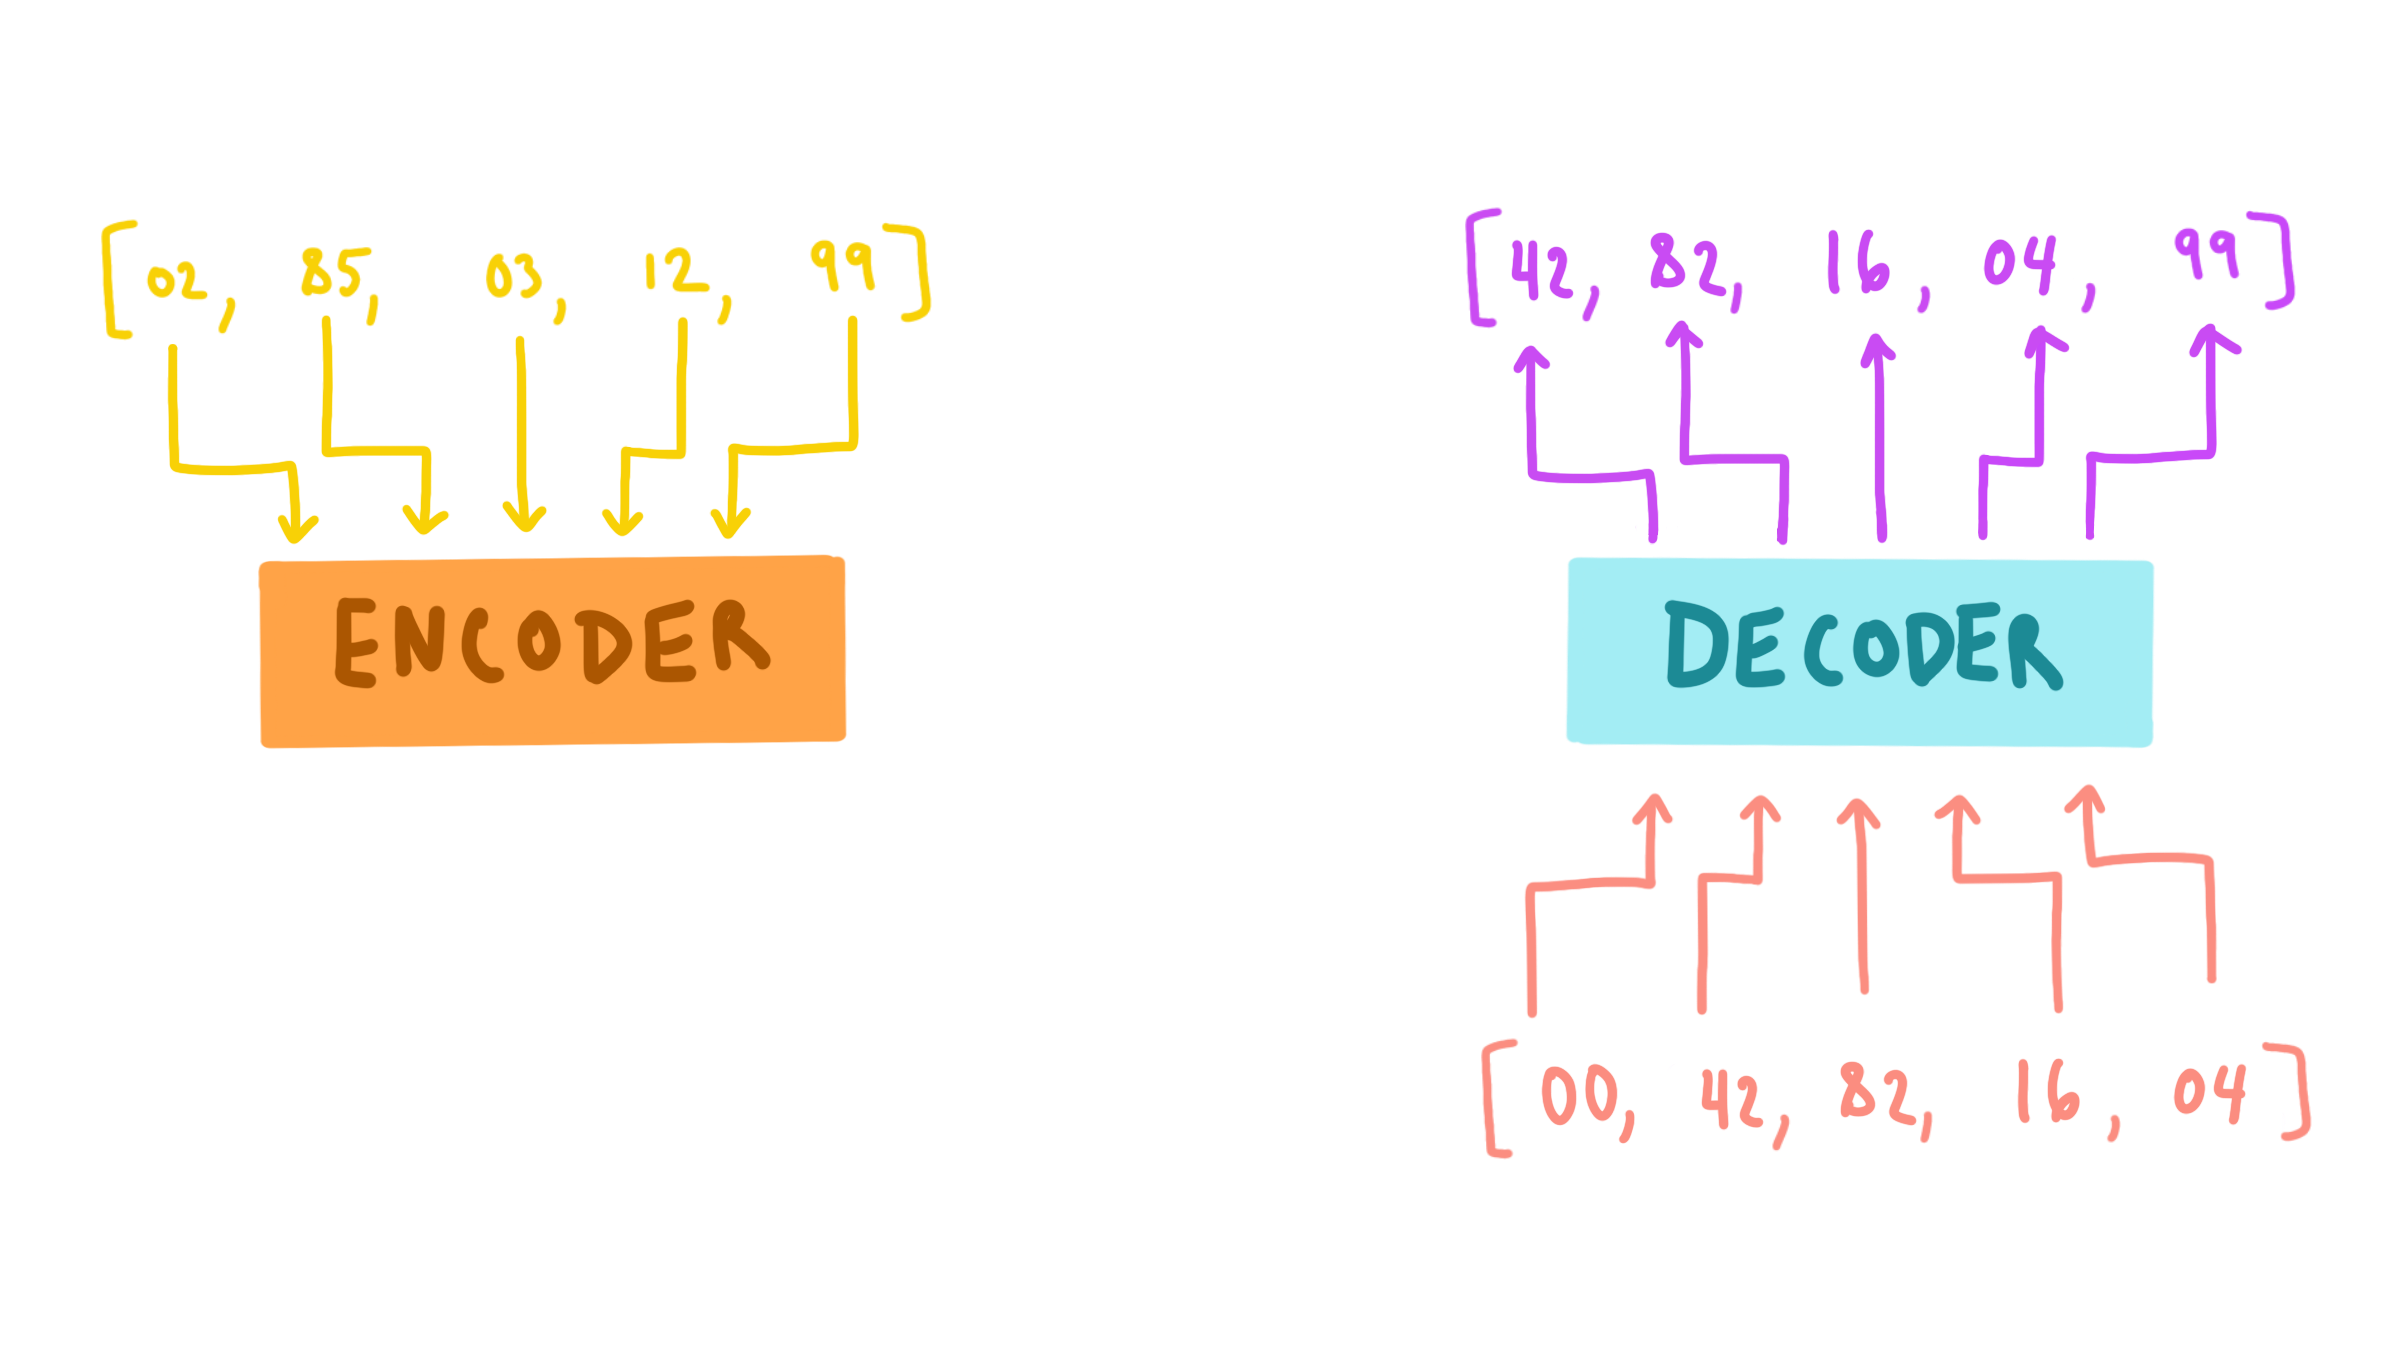 [02, 85, 03, 12, 99]
ENCODER
[42, 82, 16, 04, 99]
DECODER
[00, 42, 82, 16, 04]